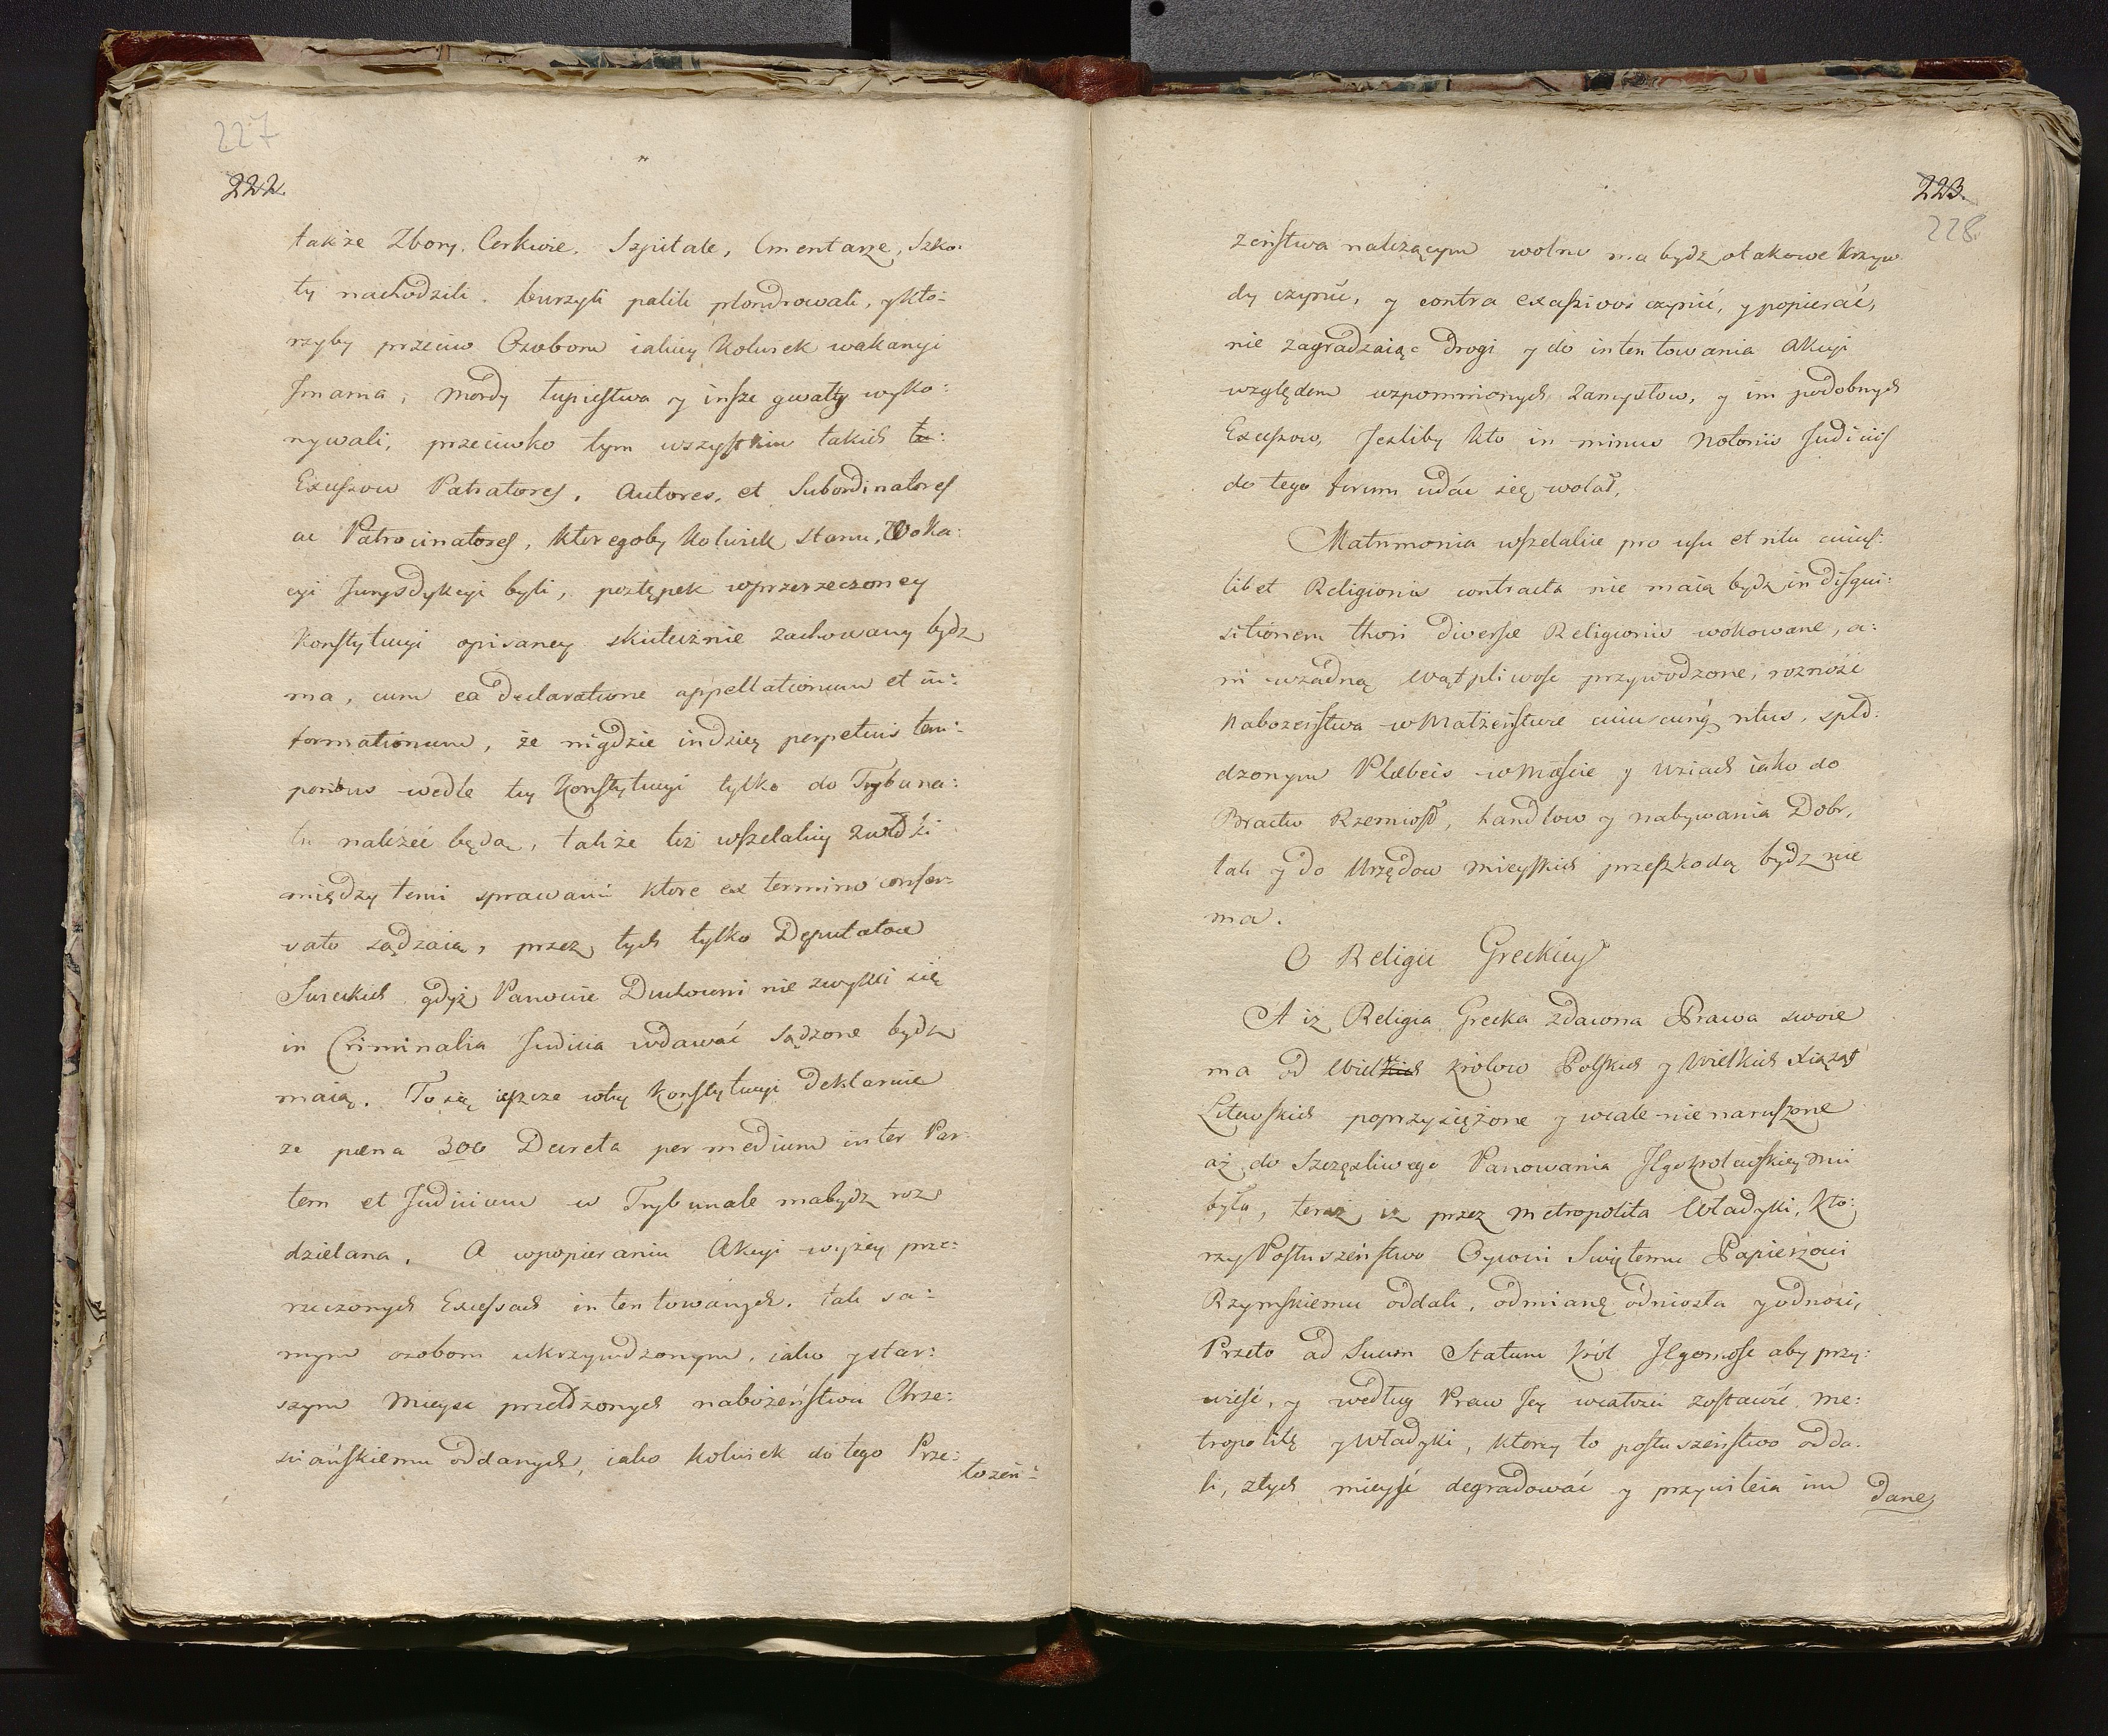 227
222.
także Zbory. Cerkwie. Szpitale, Cmentarze, Szko:
ły nachodzili. burzyli palili plondrowali, y kto:
rzyby przeciw Osobom iakiey kolwiek wakanyi
Imania, mordy łupiestwa y insze gwałty wyko:
nywali, przeciwko tym wszystkim takich
Excessow Patratores, Autores, et Subordinatores
ac Patrocinatores, ktoregoby kolwiek stanu, Woka:
cyi Jurysdykcyi byli, postępek wprzerzeczoney
Konstytucyi opisaney skutecznie zachowany bydz
ma, cum ea declaratione appellationum et in:
formationum, że nigdzie indziey perpetuis tem:
poribus wedle tey Konstytucyi tylko do Trybuna:
łu należeć będą, także też wszelakiey zwłoki
między temi sprawami ktore ex termino conser:
vato sądzaią, przez tych tylko Deputatow
Swieckich gdyż Panowie Duchowni nie zwykli się
in Criminalia Judicia wdawać sądzone bydz
maią. To się ieszcze wtey Konstytucyi deklaruie
ze pæna 300 Decreta per medium inter Par:
tem et Judicium w Trybunale mabydz roz
dzielana. A wpopieraniu Akcyi wyżey prze:
rzeczonych Excessach intentowanych. tak sa:
mym osobom ukrzywdzonym, iako y star:
szym Mieysc przełdżonych nabożeństwu Chrze:
sciańskiemu oddanych, iako kolwiek do tego Prze:
łożeń:
223.
228
żeństwa należącym wolno ma bydz otakowe krzyw
dy czynić, y contra excessivos czynić, y popierać,
nie zagradzaiąc drogi y do intentowania Akcyi
względem wzpomnionych Zamysłow, y im podobnych
Excessow, Jesliby kto in minus notoriis Judiciis
do tego forum udać się wolał,
Matrimonia wszelakie pro usu et ritu cuius:
libet Religionis contracta nie maią bydz in disqui:
sitionem thori diversæ Religionis wokowane, a:
ni wżadną wątpliwosc przywodzone, roznosć
Nabozeństwa w Małżeństwie cuiuscunq́ ritus, spłd:
dzonym Plæbeis w Mieście y Wsiach iako do
Bractw Rzemiosł, handlow y nabywania Dobr,
tak y do Urzędow mieyskich przeszkodą bydz nie
ma.
O Religii Greckiey
A iz Religia Grecka zdawna Prawa swoie
ma od Wielkich Krolow Polskich y Wielkich Xiążąt
Litewskich poprzysiężone y wcale nienaruszone
aż do Szczęśliwego Panowania JEgo Krolewskiey mci
była, teraz iz przez Metropolita Władyki, kto:
rzy Posłuszeństwo Oycowi Swiętemu Papieżowi
Rzymskiemu oddali, odmianę odniosła y odnosi,
Przeto ad Suum Statum Król JEgomość aby przy:
wieść, y według Praw Jey wcałości zostawić, Me:
tropolitę y Władyki, ktorzy to posłuszeństwo odda:
li, ztych mieyść degradować y przywileia im
dane